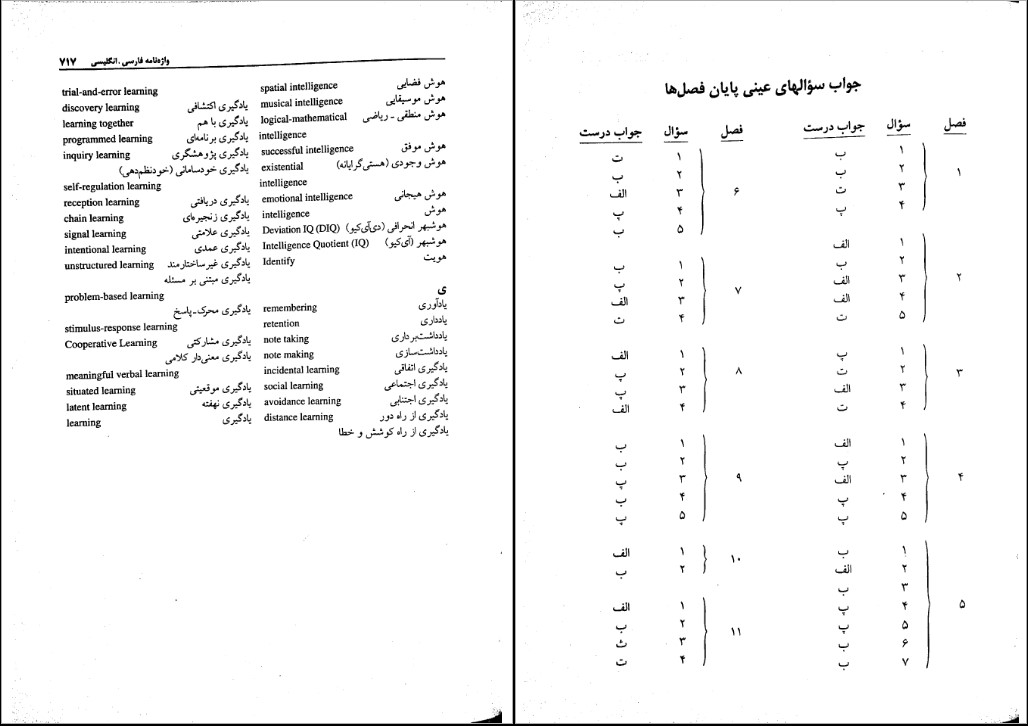 جواب سؤالهای عینی پایان فصل‌ها
فصل سؤال جواب درست
۱
۱ ب
۲ ب
۳ ت
۴ پ
۲
۱ الف
۲ ب
۳ الف
۴ الف
۵ ت
۳
۱ پ
۲ ت
۳ الف
۴ ت
۴
۱ الف
۲ پ
۳ الف
۴ پ
۵ پ
۵
۱ ب
۲ الف
۳ ب
۴ پ
۵ پ
۶ ب
۷ ب
فصل سؤال جواب درست
۶
۱ ت
۲ ب
۳ الف
۴ پ
۵ ب
۷
۱ ب
۲ پ
۳ الف
۴ ت
۸
۱ الف
۲ پ
۳ پ
۴ الف
۹
۱ ب
۲ ب
۳ پ
۴ ب
۵ پ
۱۰
۱ الف
۲ ب
۱۱
۱ الف
۲ ب
۳ ث
۴ ت
واژه‌نامه فارسی ـ انگلیسی ۷۱۷
هوش فضایی spatial intelligence
هوش موسیقایی musical intelligence
هوش منطقی ـ ریاضی logical-mathematical
intelligence
هوش موفق successful intelligence
هوش وجودی (هستی‌گرایانه) existential
intelligence
هوش هیجانی emotional intelligence
هوش intelligence
هوشبهر انحرافی (دی‌آی‌کیو) Deviation IQ (DIQ)
هوشبهر (آی‌کیو) Intelligence Quotient (IQ)
هویت Identify
ی
یادآوری remembering
یادداری retention
یادداشت‌برداری note taking
یادداشت‌سازی note making
یادگیری اتفاقی incidental learning
یادگیری اجتماعی social learning
یادگیری اجتنابی avoidance learning
یادگیری از راه دور distance learning
یادگیری از راه کوشش و خطا
trial-and-error learning
یادگیری اکتشافی discovery learning
یادگیری با هم learning together
یادگیری برنامه‌ای programmed learning
یادگیری پژوهشگری inquiry learning
یادگیری خودسامانی (خودنظم‌دهی)
self-regulation learning
یادگیری دریافتی reception learning
یادگیری زنجیره‌ای chain learning
یادگیری علامتی signal learning
یادگیری عمدی intentional learning
یادگیری غیرساختارمند unstructured learning
یادگیری مبتنی بر مسئله
problem-based learning
یادگیری محرک-پاسخ
stimulus-response learning
یادگیری مشارکتی Cooperative Learning
یادگیری معنی‌دار کلامی
meaningful verbal learning
یادگیری موقعیتی situated learning
یادگیری نهفته latent learning
یادگیری learning